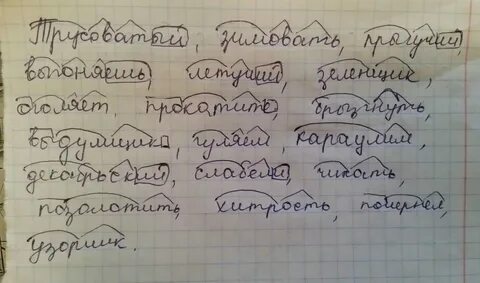 Трусоватый, зимовать, прыгучий,
выгоняешь, летучий, зеленщик,
оголяет, прокатить, брызгнуть,
выдумщика, гуляем, караулим,
декабрьский, слабели, чихать,
позолотить, хитрость, почернел,
узорщик.